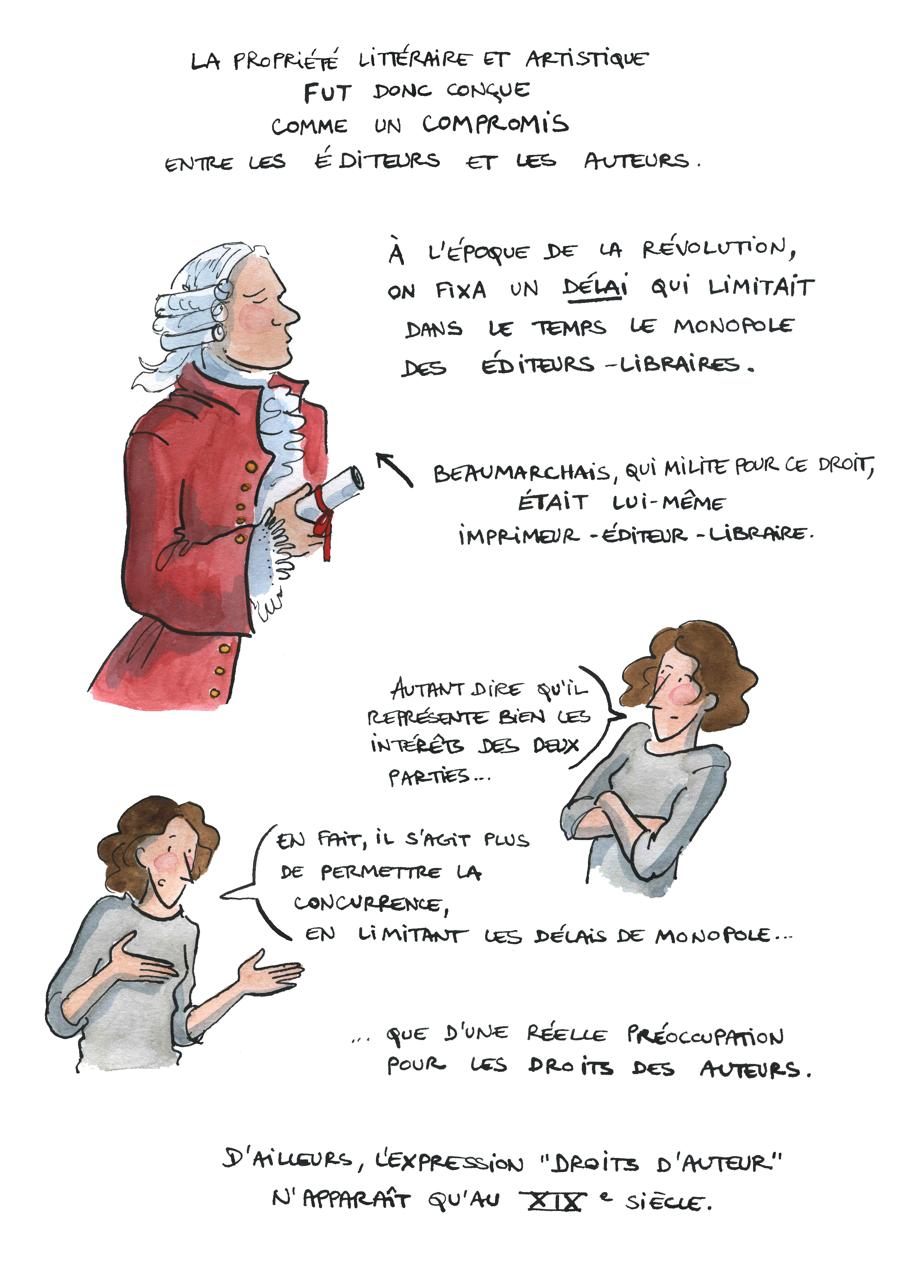 LA PROPRIÉTÉ LITTÉRAIRE ET ARTISTIQUE
FUT DONC CONÇUE
COMME UN COMPROMIS
ENTRE LES ÉDITEURS ET LES AUTEURS.
À L'ÉPOQUE DE LA RÉVOLUTION,
ON FIXA UN DÉLAI QUI LIMITAIT
DANS LE TEMPS LE MONOPOLE
DES ÉDITEURS-LIBRAIRES.
BEAUMARCHAIS, QUI MILITE POUR CE DROIT,
ÉTAIT LUI-MÊME
IMPRIMEUR-ÉDITEUR-LIBRAIRE.
AUTANT DIRE QU'IL
REPRÉSENTE BIEN LES
INTÉRÊTS DES DEUX
PARTIES...
EN FAIT, IL S'AGIT PLUS
DE PERMETTRE LA
CONCURRENCE,
EN LIMITANT LES DÉLAIS DE MONOPOLE...
... QUE D'UNE RÉELLE PRÉOCCUPATION
POUR LES DROITS DES AUTEURS.
D'AILLEURS, L'EXPRESSION "DROITS D'AUTEUR"
N'APPARAÎT QU'AU XIXe SIÈCLE.